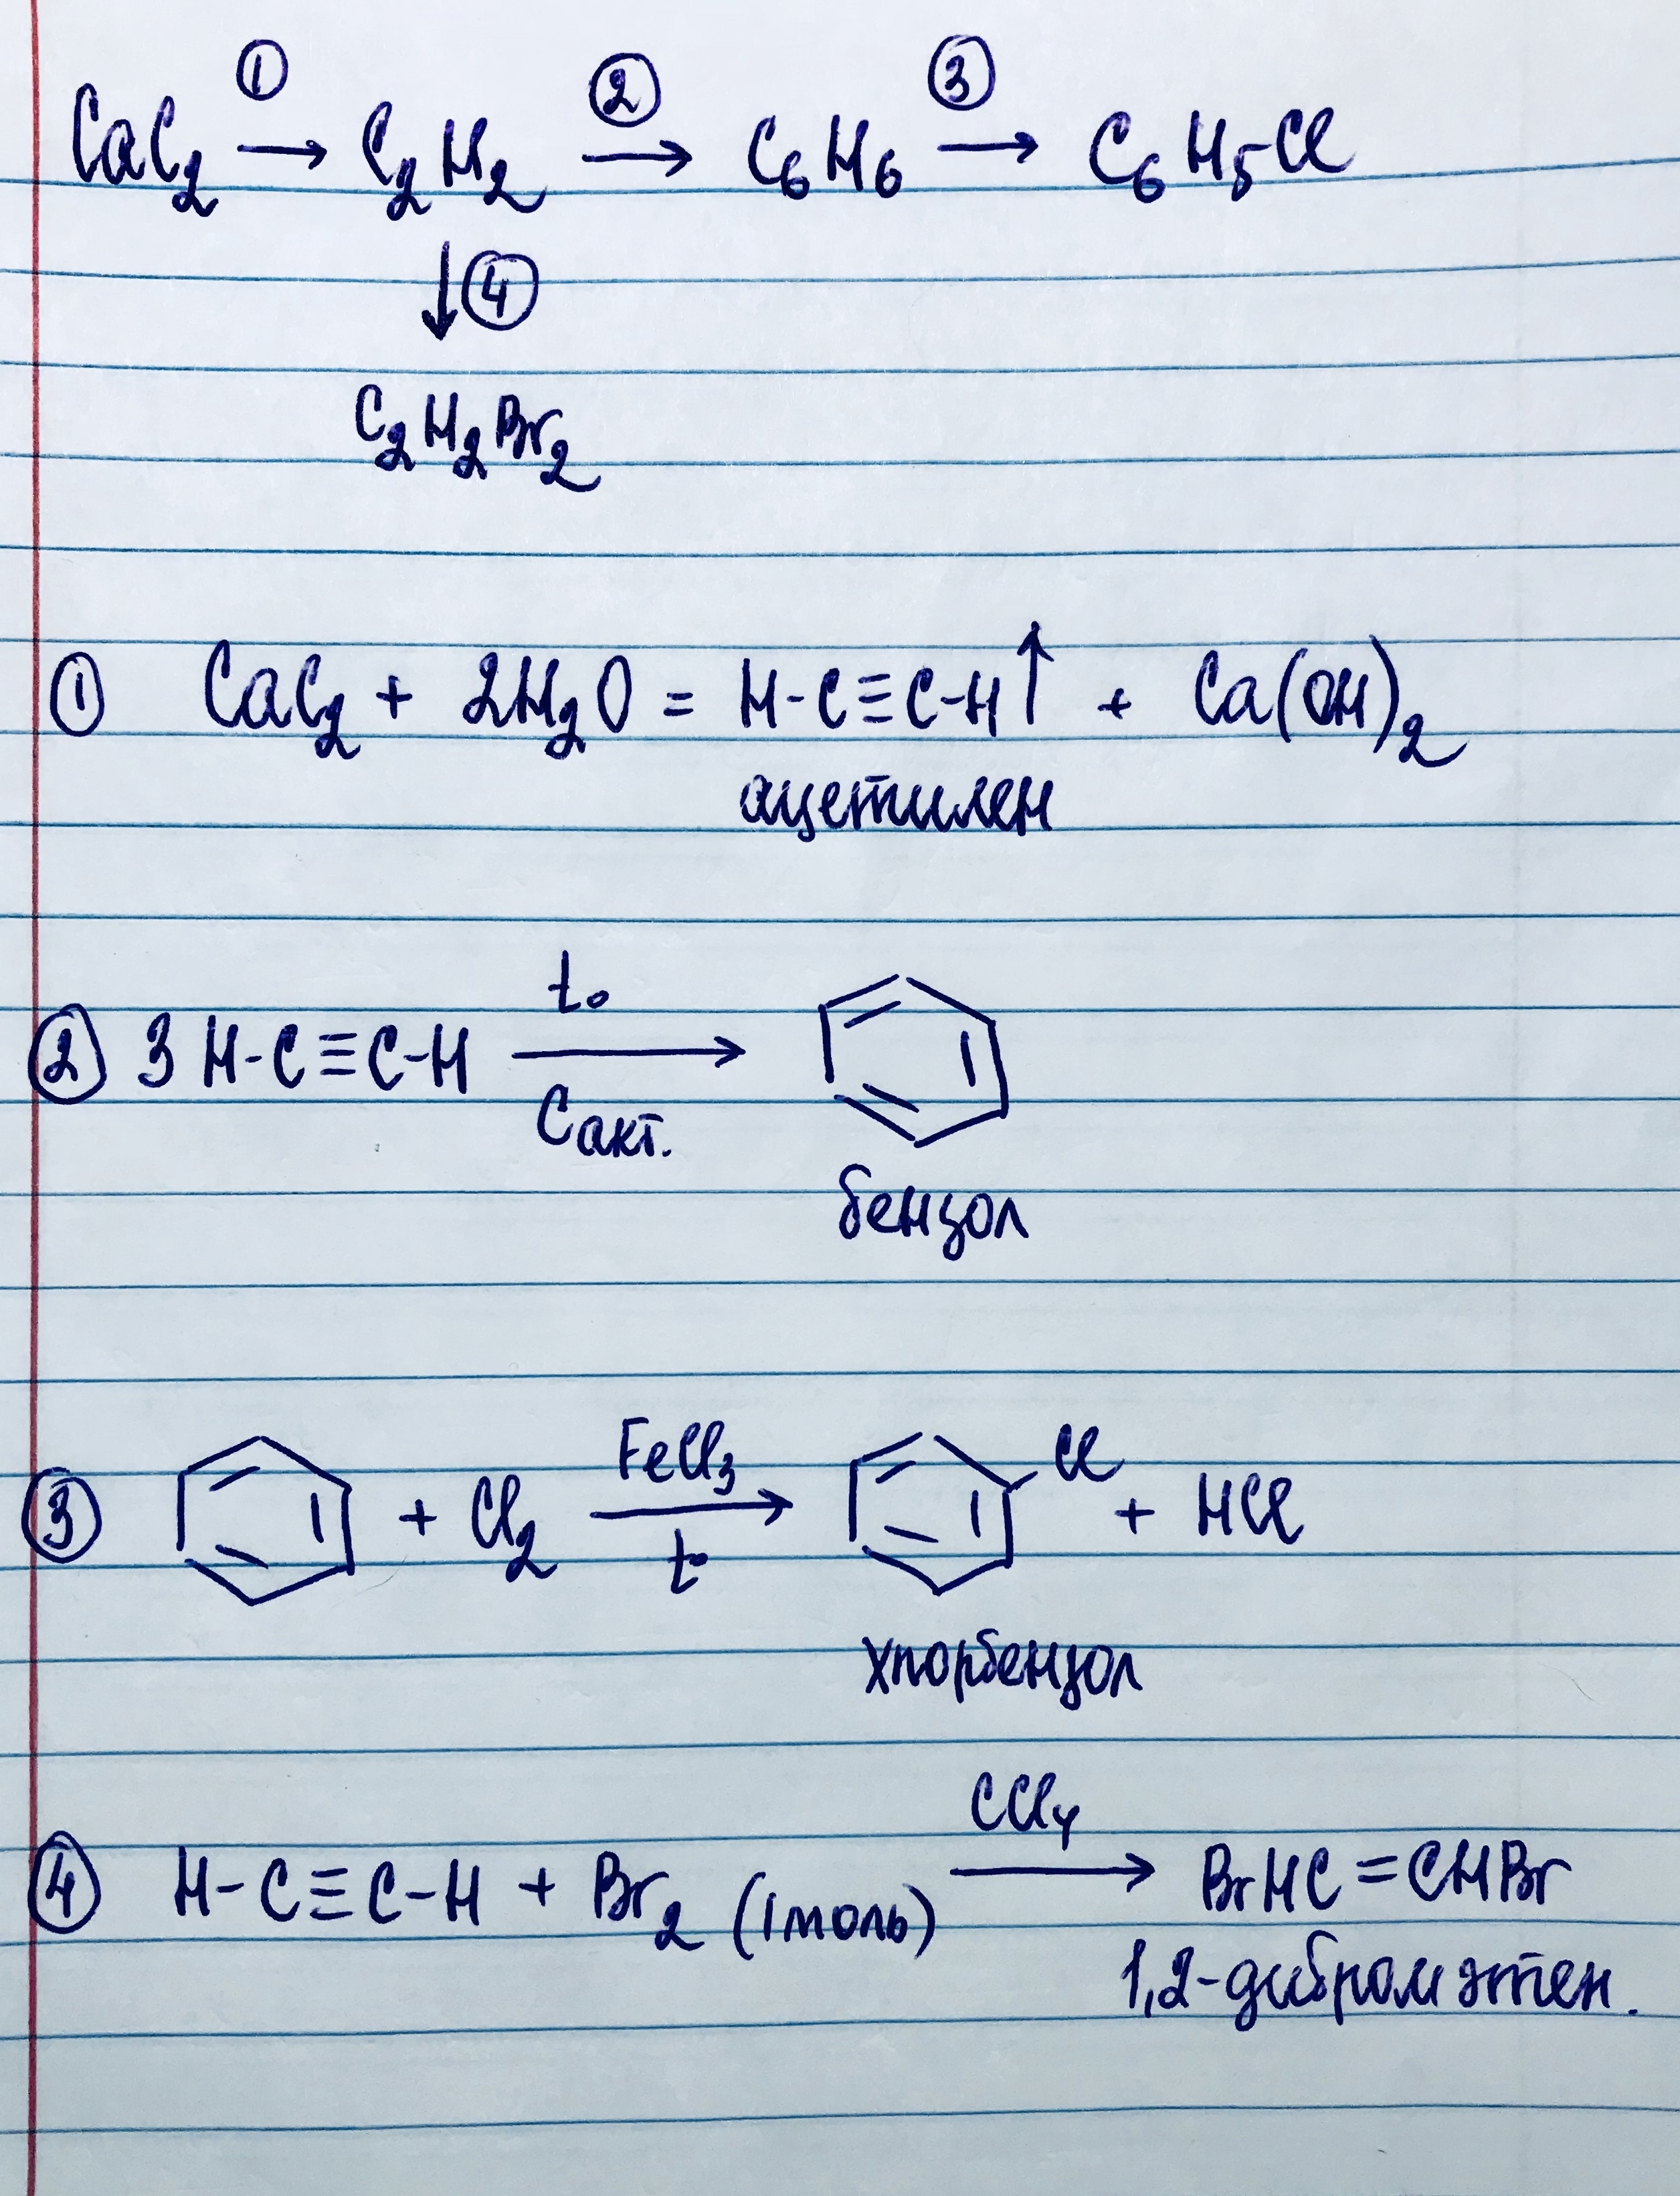 ① ② ③
CaC₂ → C₂H₂ → C₆H₆ → C₆H₅Cl
↓ ④
C₂H₂Br₂
① CaC₂ + 2H₂O = H-C≡C-H↑ + Ca(OH)₂
ацетилен
t°
② 3 H-C≡C-H →
Cакт.
бензол
FeCl₃ Cl
③ + Cl₂ → + HCl
t°
хлорбензол
CCl₄
④ H-C≡C-H + Br₂ (1моль) → BrHC=CHBr
1,2-дибромэтен.